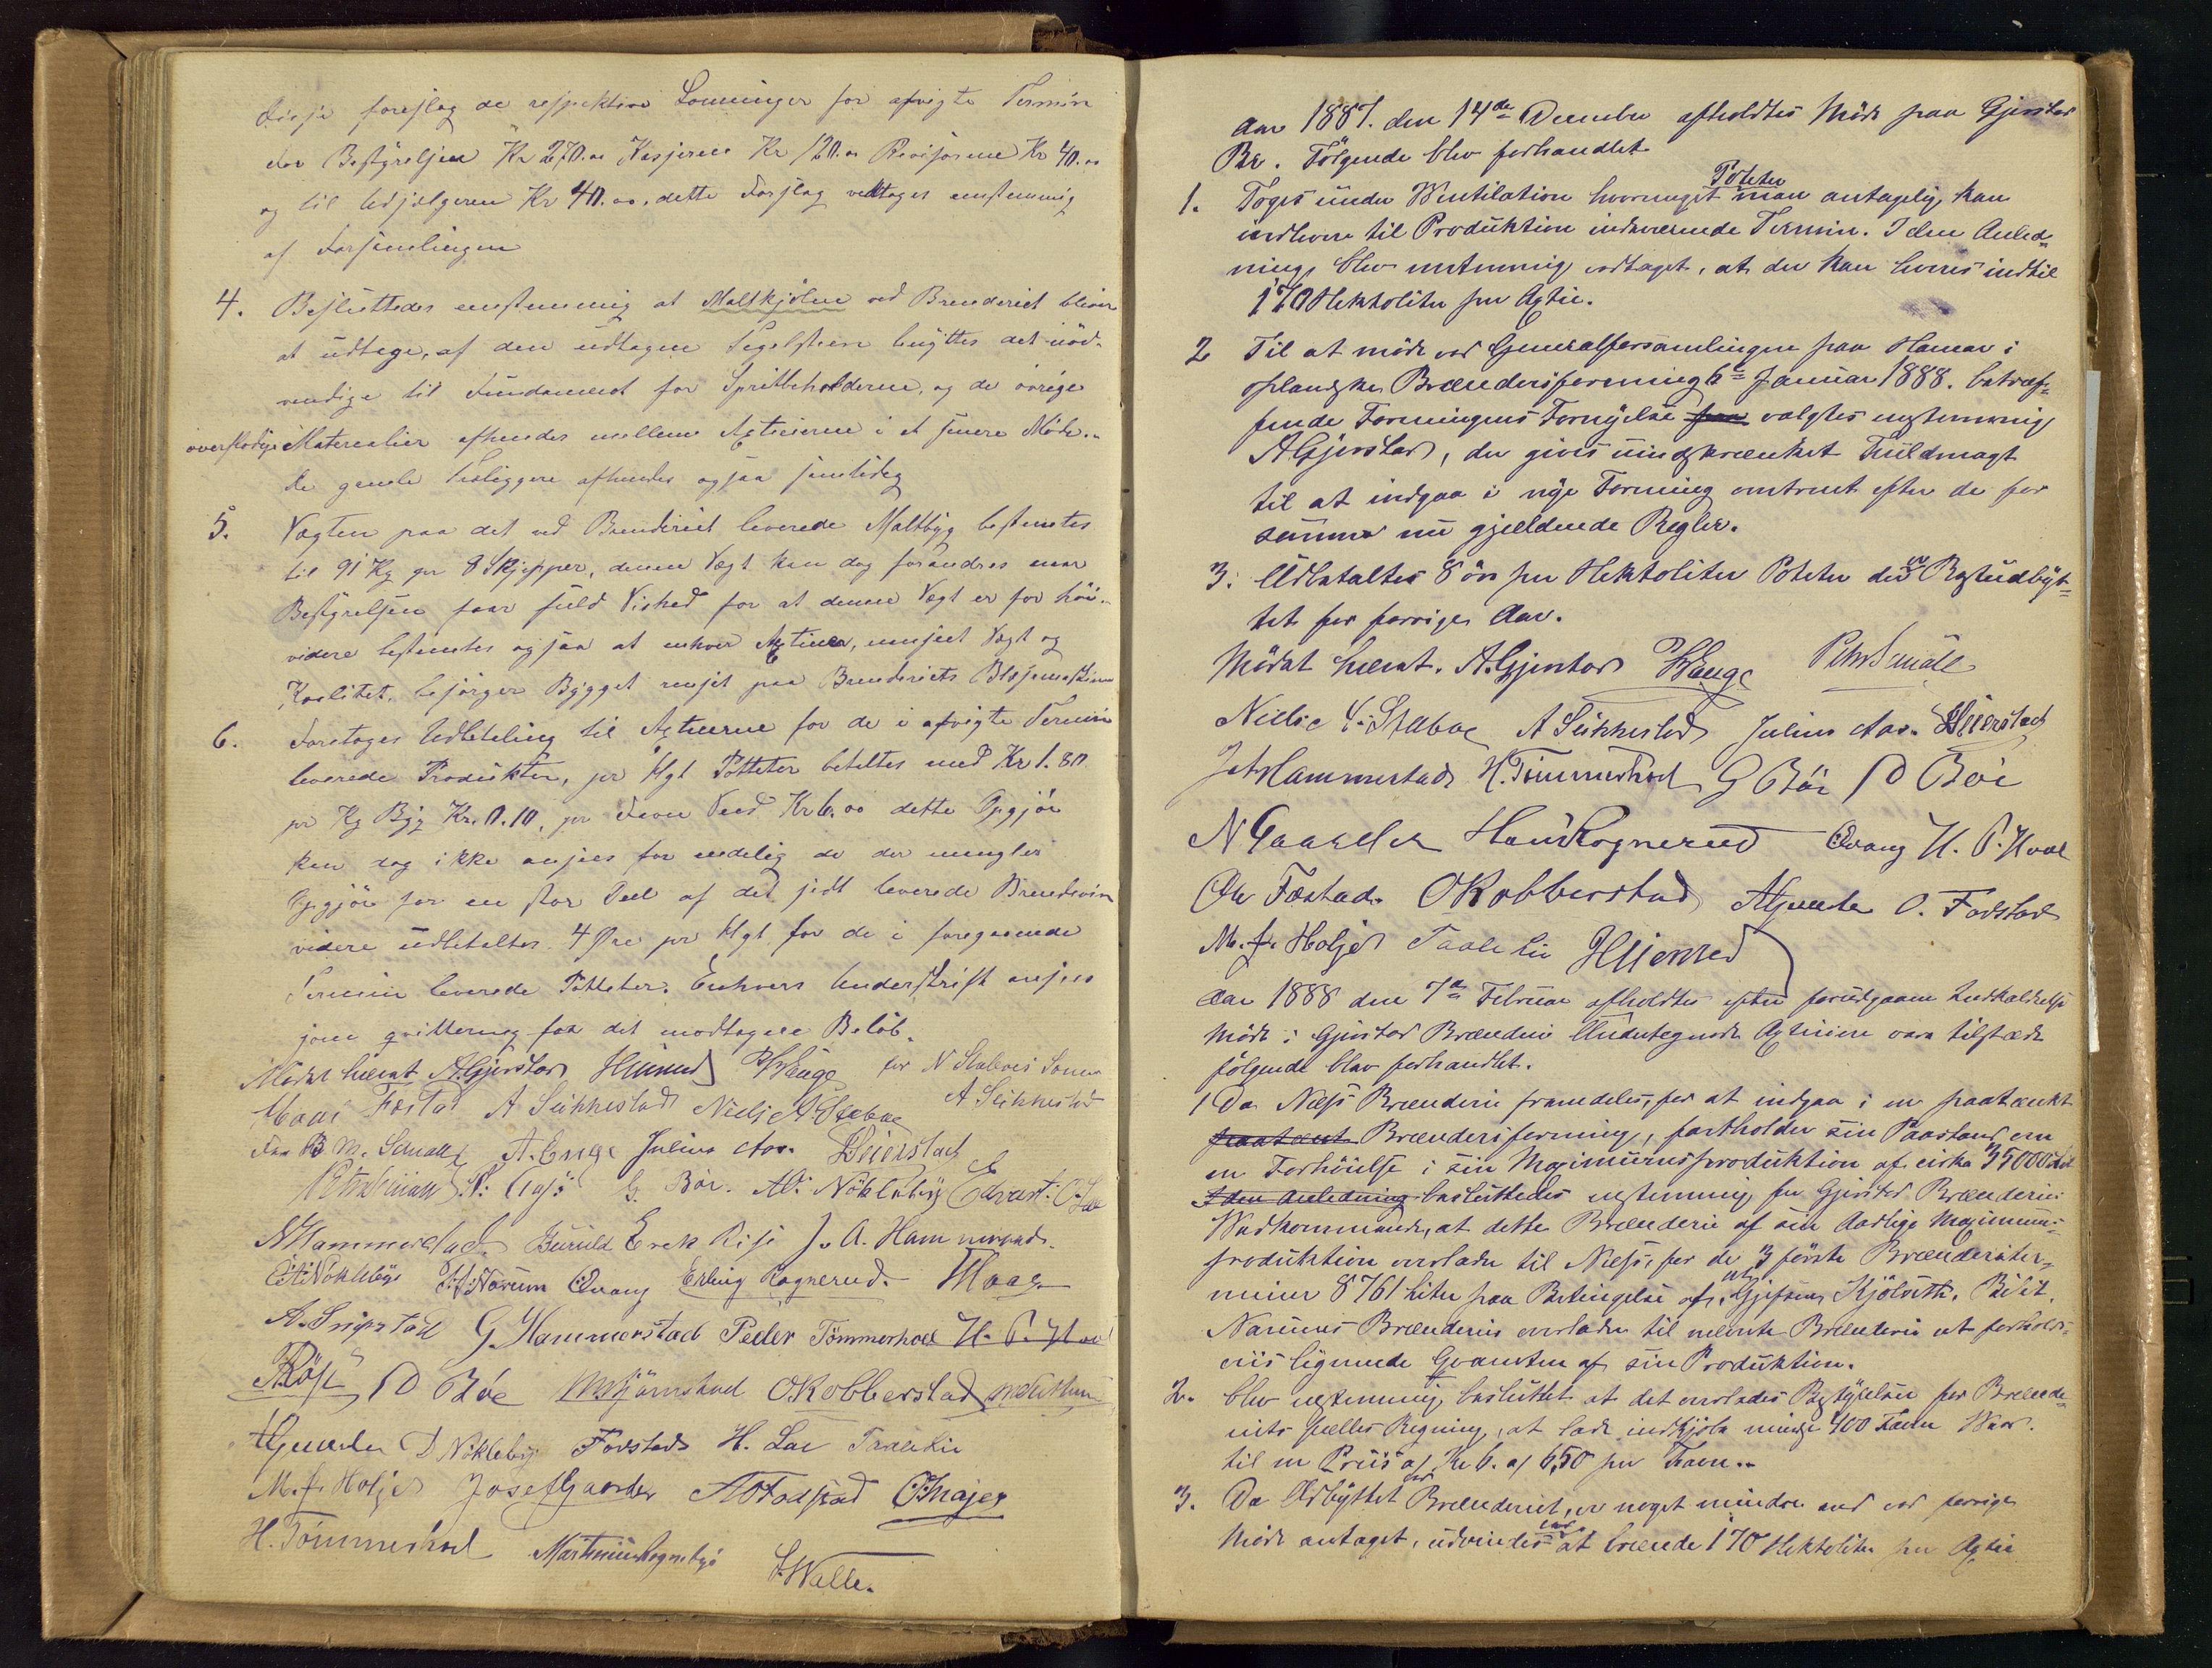 disse foreslog de respektive Lønninger for afvigte Termin
for Bestyrelsen Kr 270.00 Kasjeren Kr 120.00 Revisorerne Kr 40.00
og til Udsælgeren Kr 40.00, dette Forslag vedtoges enstemmig
af Forsamlingen
4. Besluttedes enstemmig at Maltkjølne ved Brenderiet bliver
at udtage, af den udtagne Tegelsteen benyttes det nöd-
vendige til Fundament for Spritbeholderne, og de övrige
overflødige Materealier afhendes mellem Agtieierne i et senere Møde..
de gamle afhendes ogsaa samtidig
5. Vægten paa det ved Brenderiet leverede Maltbyg bestemtes
til 91 Kg pr 8 Skjepper, denne Vægt kan dog forandres naar
Bestyrelsen faar fuld Vished for at denne Vægt er for høi..
videre bestemtes ogsaa at enhver Agtieier, uanseet Vægt og
Kvalitet, besørger Bygget renset paa Brenderiets
6. Foretoges Udbetaling til Agtieierne for de i afvigte Termin
leverede Produkter, pr Hgt Potteter betaltes med Kr 1.80
pr Kg Byg Kr. 0.10, pr Favn Ved Kr 6.00 dette Opgjör
kan dog ikke ansees for endelig da der mangler
Opgjör for en stor Deel af det sidst leverede Brendevin
videre udbetaltes 4 Øre pr Hgt for de i foregaaende
Termin leverede Potteter. Enhvers Underskrift ansees
som qvittering for det modtagne Belöb.
Mødet hævet A. Gjerstad HHiensed PHauge for N Stabos
Fæstad A Sukkestad Niels A. Stabae A Sukkestad
for M. Smull A. Enge Julius Aas. Beierstad
Peter Smull G. Böe. Nökleby Edvart O.
Hammerstad Buruld Erek Risi J. A. Hammerstad
Nökleby Narum Qvang Erling Rognerud. Haag
G. Hammerstad Peder Tömmerhoel H. P. Hoel
Röise P Böe MHjärnstad O Kobberstad
AGunder D Nökleby Fodstad H. Lae Taale Lie
M. J. Holje Josef Gaarder A Fodstad
H. Tömmerhoel Martinius Rognebye
S. Walle.
Aar 1887. den 14de December afholdtes Møde paa Gjerstad
Br. Følgende blev forhandlet
1. Toges under Wentilation hvormeget Poteter man antagelig kan
indlevere til Produktion indeværende Termin. I den Anled=
ning blev enstemmig vedtaget, at der kan leveres indtil
170 Hektoliter per Agtie.
2 Til at møde ved Generalforsamlingen paa Hamar i
oplandske Brænderiforening 6te Januar 1888. betræf=
fende Foreningens Fornyelse paa valgtes enstemmig
A Gjerstad, der gives uindskrænket Fuldmagt
til at indgaa i nye Forening omtrent efter de for
samme nu gjældende Regler.
3. Udbetaltes 8 öre per Hektoliter Poteter der er Restudbyt=
tet for forrige Aar.
Mødet hævet. A. Gjerstad PHauge Peter Smull
Niels A. Stabae A Sukkestad Julius Aas. Beierstad
Joh Hammerstad H. Tömmerhoel G Böe P Böe
N Gaarder Hans Rognerud Qvang H. P. Hoel
Ole Fæstad. O Kobberstad AGunder O. Fodstad
M. J. Holje Taale Lie HHiensed
Aar 1888 den 7de Februar afholdtes efter forudgaaen Indkaldelse
Møde i Gjerstad Brænderi Undertegnede Agtieiere vare tilstæde
følgende blev forhandlet.
1 Da Næss Brænderi fremdeles, for at indgaa i en paatænkt
paatænt Brænderiforening, fortholder sin Paastand om
en Forhöielse i sin Maximumsproduktion af cirka 35000 Liter
I den Anledning besluttedes enstemmig for Gjerstad Brænderies
Wedkommende, at dette Brænderi af sin Aarlige Maximums
produktion overlader til Næss, for de 3 förste Brænderiter=
miner 8761 Liter paa Betingelse af, at Gjefsens Kjölseth.
Narums Brænderi overlader til nævnte Brænderi et forholds=
viis lignende Qvantum af sin Produktion.
2. blev enstemmig besluttet at det overlades Bestyrelsen for Brænde
riets fælles Regning, at lade indkjøbe mindst 400 Favne Wed.
til en Priis af Kr 6. a 6,50 per Favn..
3. Da Udbyttet ved Brænderiet, er noget mindre end ved forrige
Møde antaget, udvindes ved at brænde 170 Hektoliter per Agtie